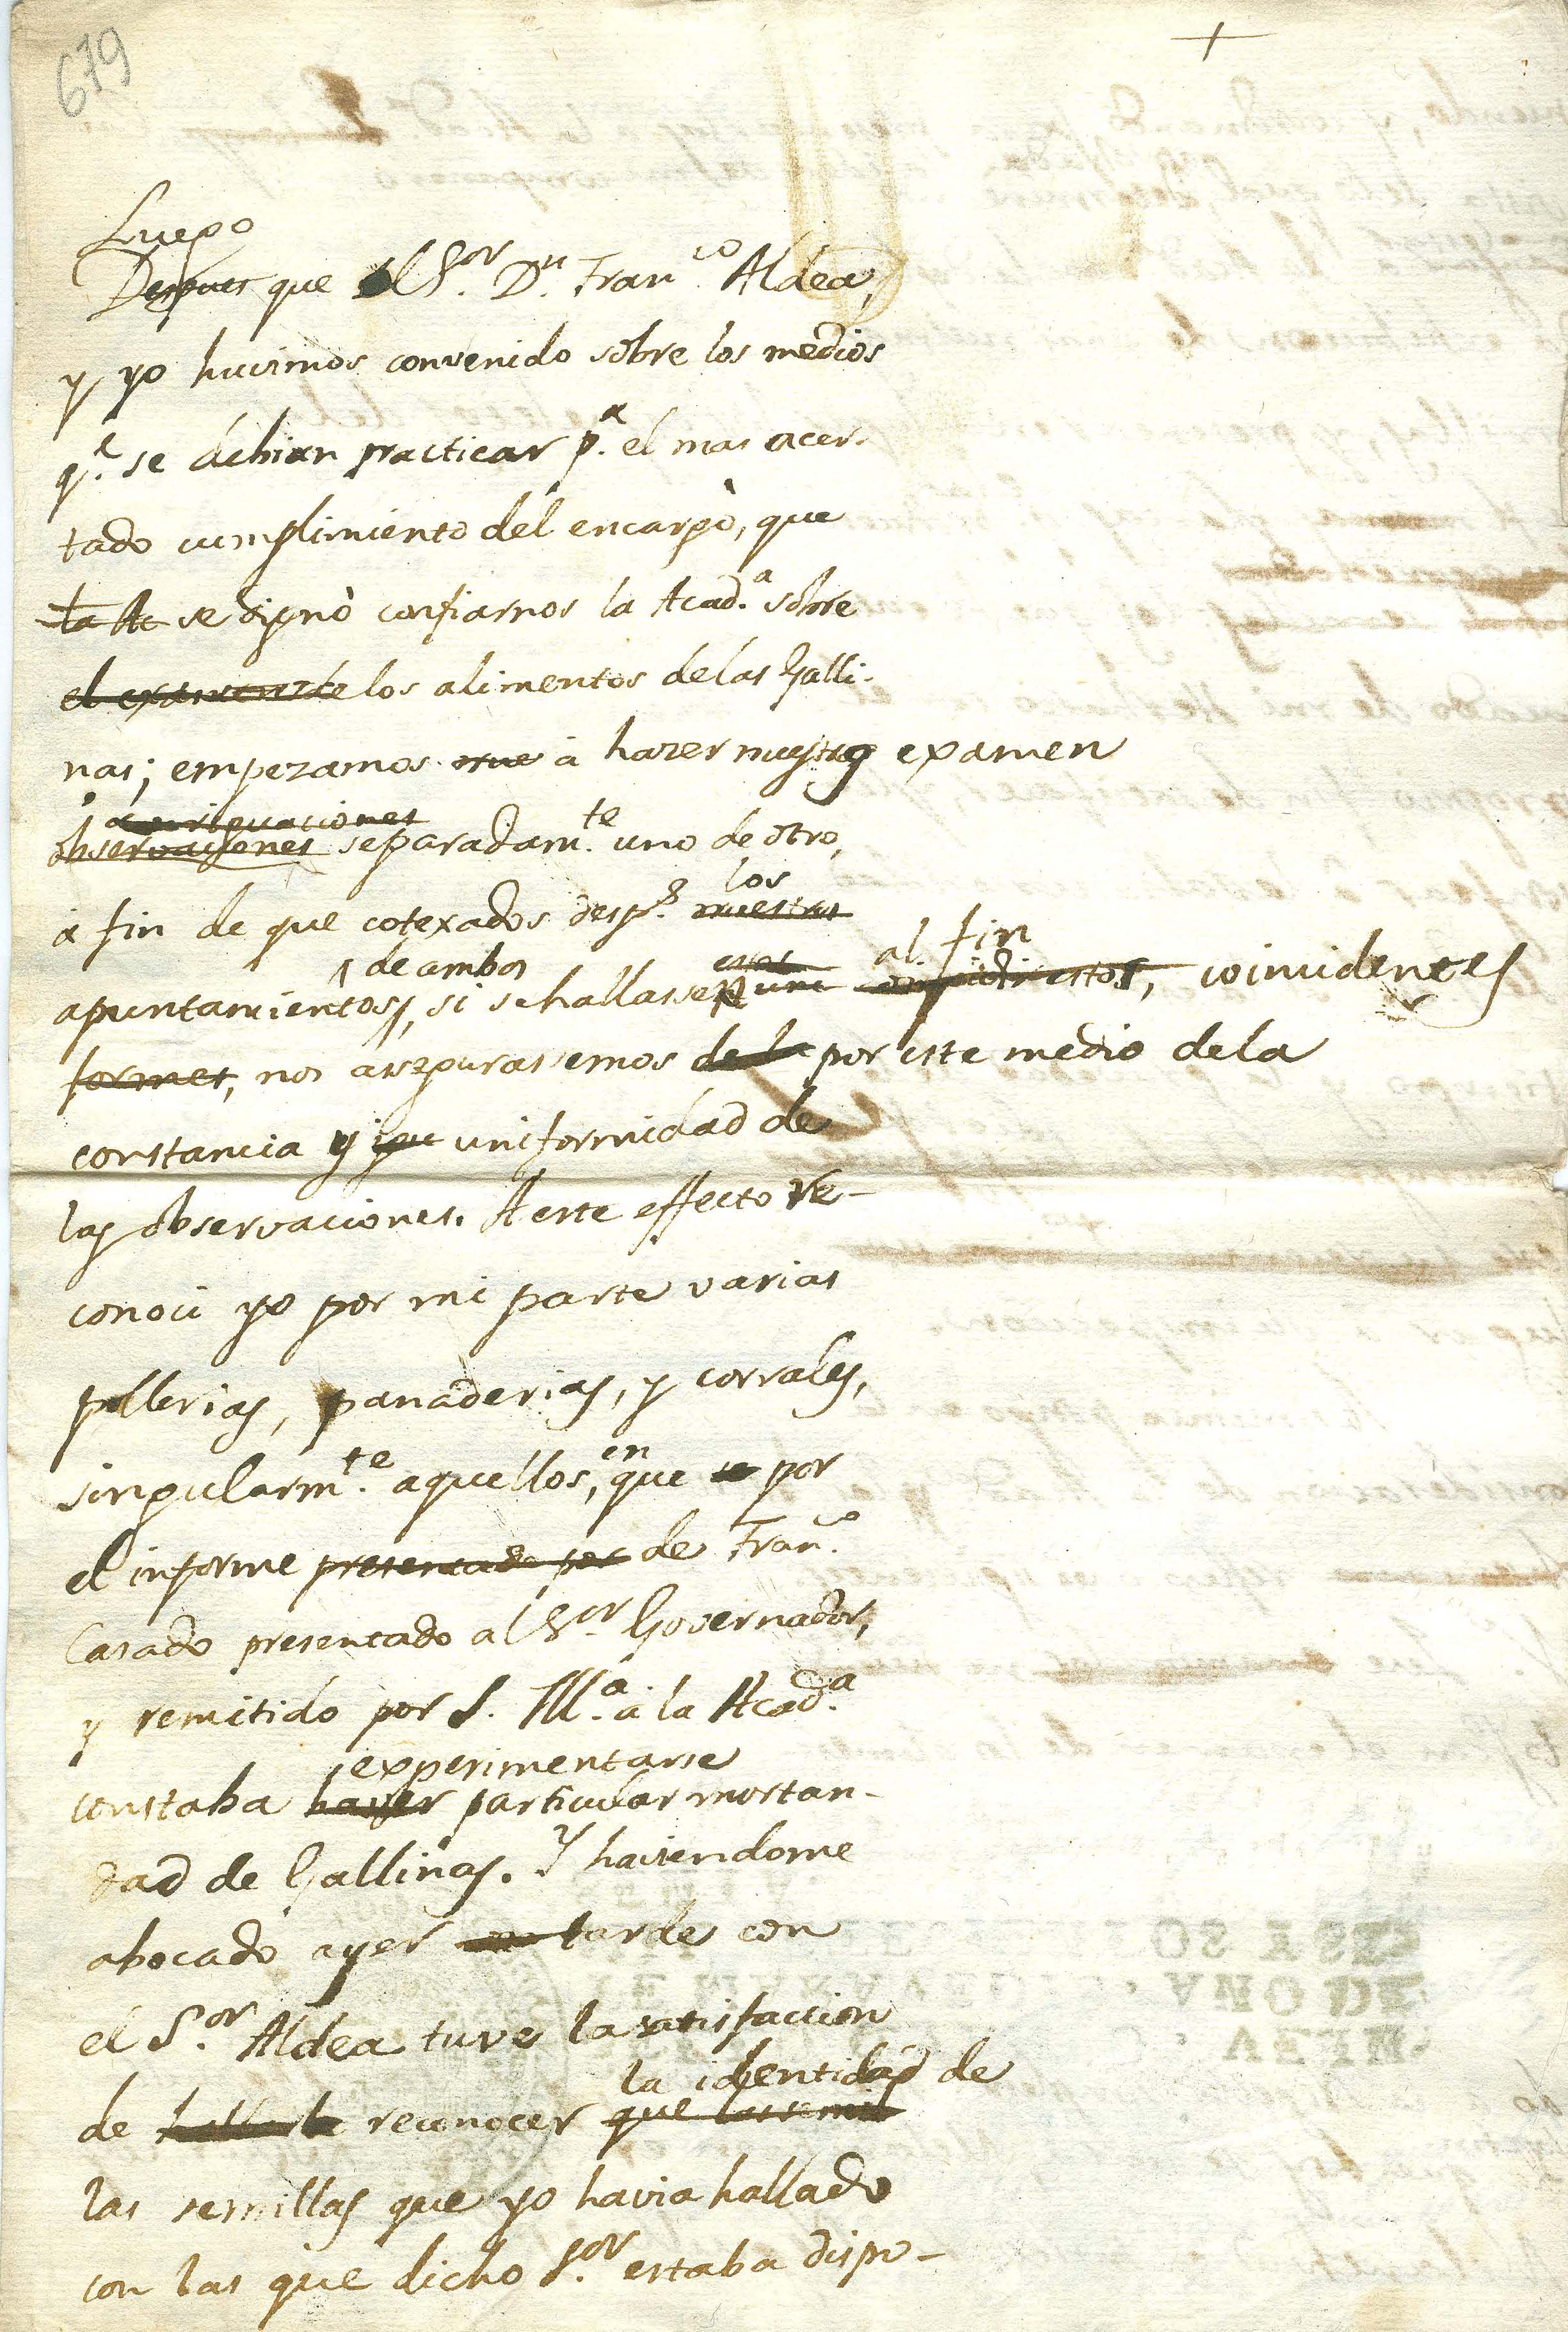 679
+
Luego
Despues que el S.or D.n Fran.co Aldea,
y yo huvimos convenido sobre los medios
q.e se debian practicar p.a el mas acer-
tado cumplimiento del encargò, que
la Ac se dignò confiarnos la Acad.a sobre
el examen de los alimentos delas Galli-
nas; empezamos à hazer nuestro examen
averiguaciones
observaciones separadam.te uno de otro,
los
à fin de que cotexados desp.s nuestros
de ambos al fin
apuntamientos, si se hallassen coincidentes
formes, nos asegurassemos de la por este medio dela
constancia y uniformidad de
las observaciones. A este effecto re-
conoci yo por mi parte varias
pollerias, panaderias, y corrales,
en
singularm.te aquellos, que por
el informe presentado por de Fran.co
Casado presentado al S.or Governador,
y remitido por S. Ill.a à la Acad.a
experimentarse
constaba haver particular mortan-
dad de Gallinas. Y haviendome
abocado ayer tarde con
el S.or Aldea tuve la satisfaccion
la identidad de
de reconocer que las semill
las semillas que yo havia hallado
con las que dicho S.or estaba dispo-